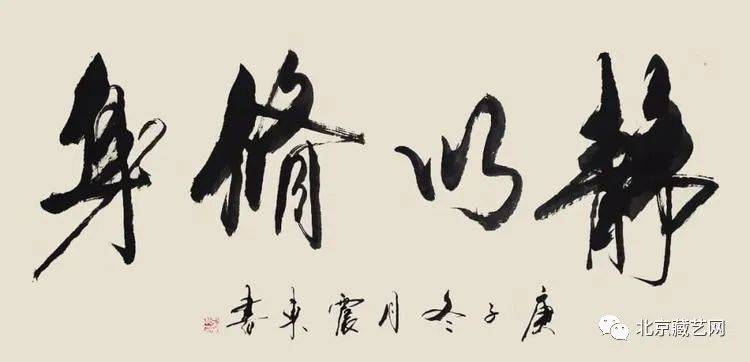 静以脩身
庚子冬月震东書
北京藏艺网